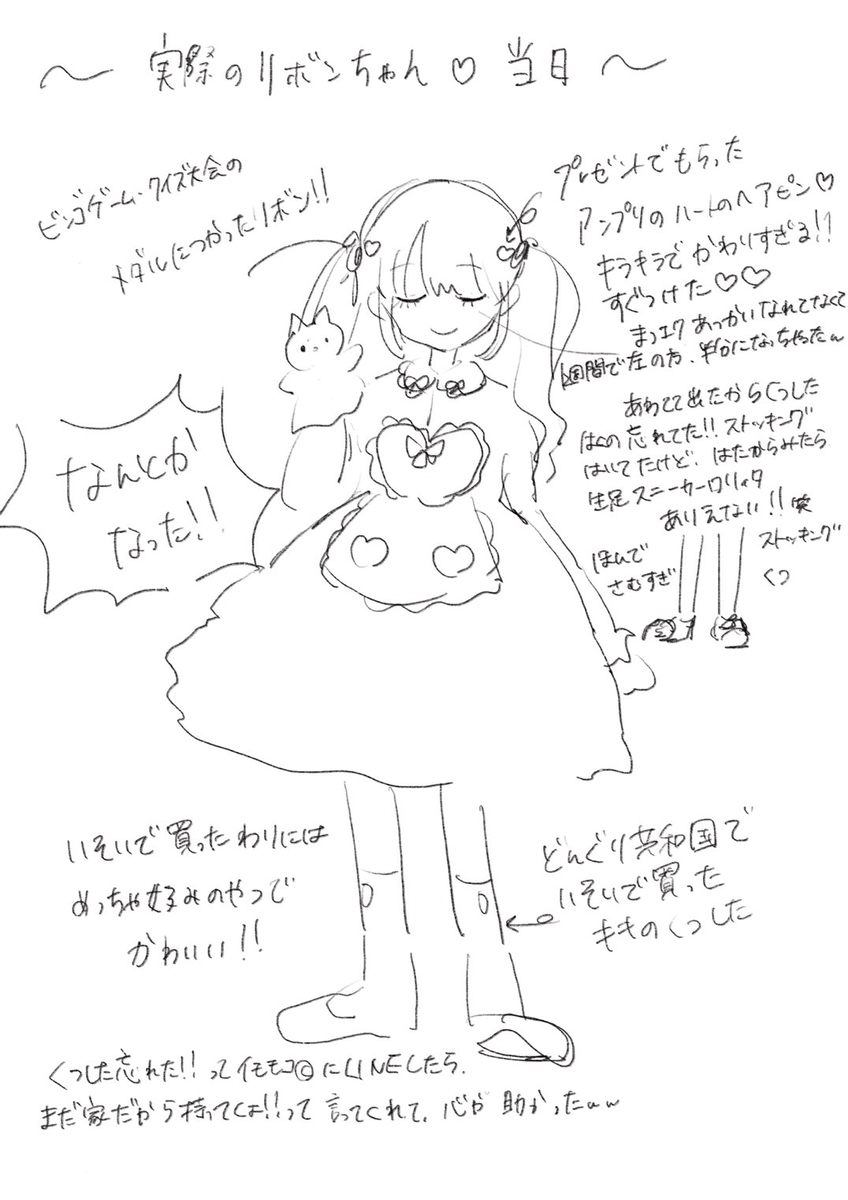 〜 実際のリボンちゃん♡当日 〜
ビンゴゲーム・クイズ大会の
メダルにつかったリボン!!
プレゼントでもらった
アンプリのハートのヘアピン♡
キラキラでかわいすぎる!!
すぐつけた♡♡
まつエクあつかいなれてなくて
週間で左の方、半分になっちゃったw
あわてて出たからくつした
はくの忘れてた!!ストッキング
はいてたけど、はたからみたら
生足スニーカーロリィタ
ありえない!!笑
ほんで
さむすぎ
ストッキング
くつ
なんとか
なった!!
いそいで買ったわりには
めっちゃ好みのやつで
かわいい!!
どんぐり共和国で
いそいで買った
キキのくつした
くつした忘れた!!ってイモモコ©にLINEしたら、
まだ家だから持ってくよ!!って言ってくれて、心が助かったww